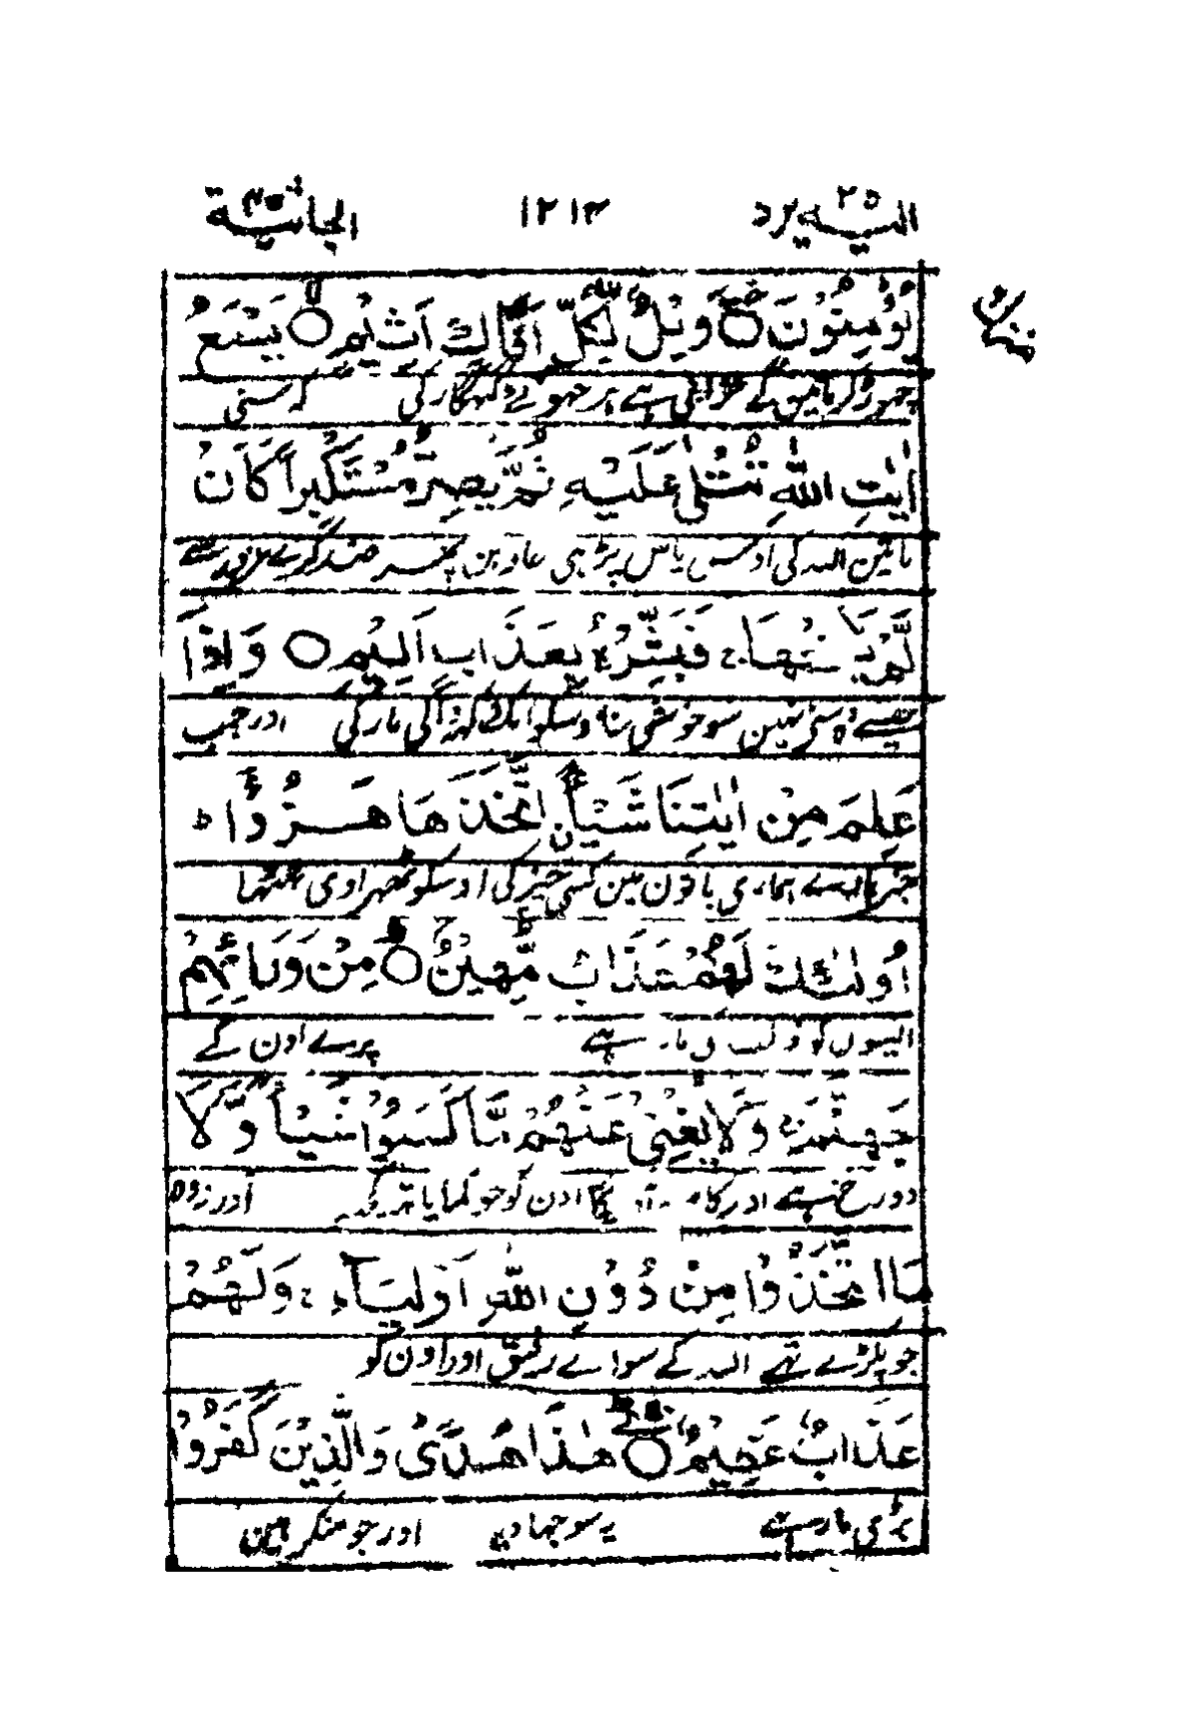 الیہ یرد ٢٥ ١٢١٣ الجاثیة ٤٥
یُؤْمِنُوْنَ ○ وَیْلٌ لِّكُلِّ اَفَّاكٍ اَثِیْمٍ ○ یَسْمَعُ
چھوڑ کر مانین گے خرابی ہے ہر جھوٹے گنہگار کی کہ سنی
اٰیٰتِ اللّٰهِ تُتْلٰی عَلَیْهِ ثُمَّ یُصِرُّ مُسْتَكْبِرًا كَاَنْ
باتین اللہ کی اوس پاس پڑھی جاوین پھر ضد کرے غرور سے
لَّمْ یَسْمَعْهَا ج فَبَشِّرْهُ بِعَذَابٍ اَلِیْمٍ ○ وَاِذَا
جیسے وہ سنی نہین سو خوشی سنا اوسکو ایک دکھ کی مار کی اور جب
عَلِمَ مِنْ اٰیٰتِنَا شَیْـًٔا اتَّخَذَهَا هُزُوًا ط
خبر پاوے ہماری باتون مین کسی چیز کی اوسکو ٹھہراوی ٹھٹھا
اُولٰٓئِكَ لَهُمْ عَذَابٌ مُّهِیْنٌ ○ مِنْ وَّرَآئِهِمْ
ایسون کو ذلت کی مار ہے پرے اون کے
جَهَنَّمُ ج وَلَا یُغْنِیْ عَنْهُمْ مَّا كَسَبُوْا شَیْـًٔا وَّلَا
دوزخ ہے اور کام نہ آویگا اون کو جو کمایا تھا اور نہ وہ
مَا اتَّخَذُوْا مِنْ دُوْنِ اللّٰهِ اَوْلِیَآءَ ج وَلَهُمْ
جو پکڑے تھے اللہ کے سواے رفیق اور اون کو
عَذَابٌ عَظِیْمٌ ○ هٰذَا هُدًی وَالَّذِیْنَ كَفَرُوْا
بڑی مار ہے یہ سوجھادیا اور جو منکر ہین